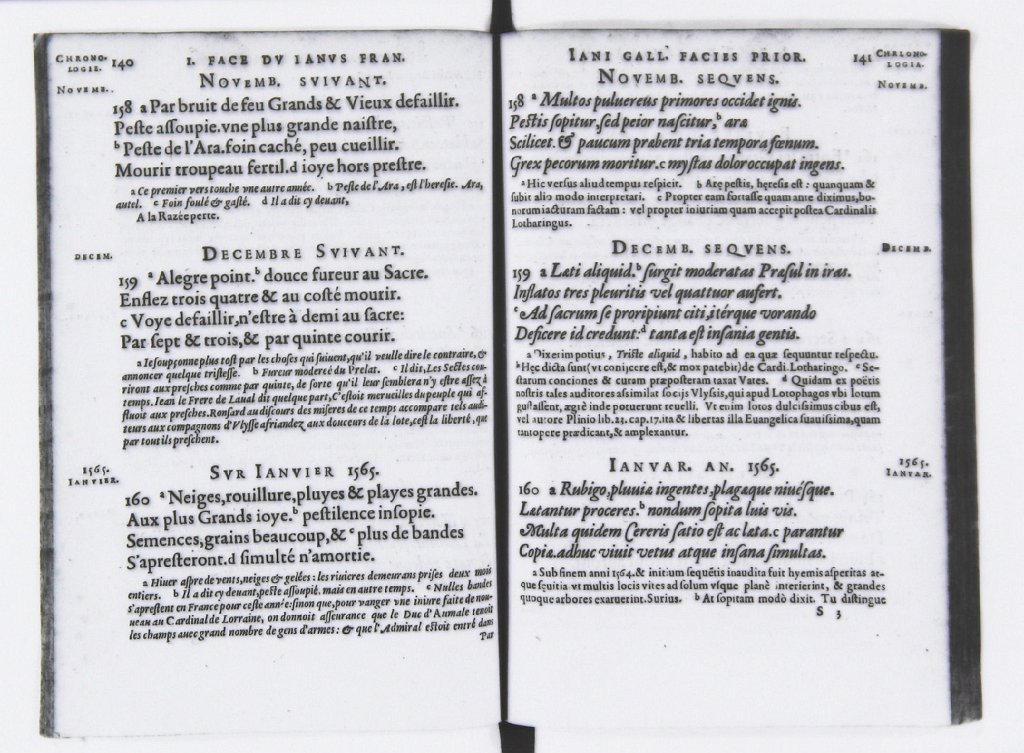 CHRONO-
LOGIE.
140
I. FACE DV IANVS FRAN.
NOVEMB. SVIVANT.
NOVEMB.
158 a Par bruit de feu Grands & Vieux defaillir.
Peste assoupie. vne plus grande naistre,
b Peste de l'Ara. foin caché, peu cueillir.
Mourir troupeau fertil. d ioye hors prestre.
a Ce premier vers touche vne autre année. b Peste de l'Ara, est l'heresie. Ara,
autel. c Foin foulé & gasté. d Il a dit cy deuant,
A la Razée perte.
DECEMBRE SVIVANT.
DECEM.
159 a Alegre point. b douce fureur au Sacre.
Enflez trois quatre & au costé mourir.
c Voye defaillir, n'estre à demi au sacre:
Par sept & trois, & par quinte courir.
a Ie soupçonne plus tost par les choses qui suiuent, qu'il veulle dire le contraire, &
annoncer quelque tristesse. b Fureur moderée du Prelat. c Il dit, Les Sectes cou-
riront aux presches comme par quinte, de sorte qu'il leur semblera n'y estre assez à
temps. Iean le Frere de Laual dit quelque part, C'estoit merueilles du peuple qui af-
fluoit aux presches. Ronsard au discours des miseres de ce temps accompare tels audi-
teurs aux compagnons d'Vlysse afriandez aux douceurs de la lote, cest la liberté, que
par tout ils preschent.
SVR IANVIER 1565.
1565.
IANVIER.
160 a Neiges, rouillure, pluyes & playes grandes.
Aux plus Grands ioye. b pestilence insopie.
Semences, grains beaucoup, & c plus de bandes
S'apresteront. d simulté n'amortie.
a Hiuer aspre de vents, neiges & gelées: les riuieres demeurans prises deux mois
entiers. b Il a dit cy deuant, peste assoupie. mais en autre temps. c Nulles bandes
s'aprestent en France pour ceste année: sinon que, pour vanger vne iniure faite de nou-
ueau au Cardinal de Lorraine, on donnoit asseurance que le Duc d'Aumale tenoit
les champs auec grand nombre de gens d'armes: & que l'Admiral estoit entré dans
Par
IANI GALL. FACIES PRIOR.
141
CHRONO-
LOGIA.
NOVEMB. SEQVENS.
NOVEMB.
158 a Multos puluereus primores occidet ignis.
Pestis sopitur, sed peior nascitur, b aræ
Scilicet. & paucum præbent tria tempora fœnum.
Grex pecorum moritur. c mystas dolor occupat ingens.
a Hic versus aliud tempus respicit. b Aræ pestis, hæresis est: quanquam &
subit alio modo interpretari. c Propter eam fortasse quam ante diximus, bo-
norum iacturam factam: vel propter iniuriam quam accepit postea Cardinalis
Lotharingus.
DECEMB. SEQVENS.
DECEMB.
159 a Læti aliquid. b surgit moderatas Præsul in iras.
Inflatos tres pleuritis vel quattuor aufert.
c Ad sacrum se proripiunt citi, itérque vorando
Deficere id credunt: d tanta est insania gentis.
a Dixerim potius, Triste aliquid, habito ad ea quæ sequuntur respectu.
b Hęc dicta sunt (vt conijcere est, & mox patebit) de Cardi. Lotharingo. c Se-
ctarum conciones & curam præposteram taxat Vates. d Quidam ex poëtis
nostris tales auditores assimilat socijs Vlyssis, qui apud Lotophagos vbi lotum
gustassent, ægrè inde potuerunt reuelli. Vt enim lotos dulcissimus cibus est,
vel autore Plinio lib. 23. cap. 17. ita & libertas illa Euangelica suauissima, quam
tantopere prædicant, & amplexantur.
IANVAR. AN. 1565.
1565.
IANVAR.
160 a Rubigo, pluuiæ ingentes, plagæque niuésque.
Lætantur proceres. b nondum sopita luis vis.
Multa quidem Cereris satio est ac læta. c parantur
Copiæ. adhuc viuit vetus atque insana simultas.
a Sub finem anni 1564. & initium sequētis inaudita fuit hyemis asperitas at-
que sęuitia vt multis locis vites ad solum vsque planè interierint, & grandes
quoque arbores exaruerint. Surius. b At sopitam modò dixit. Tu distingue
S 3